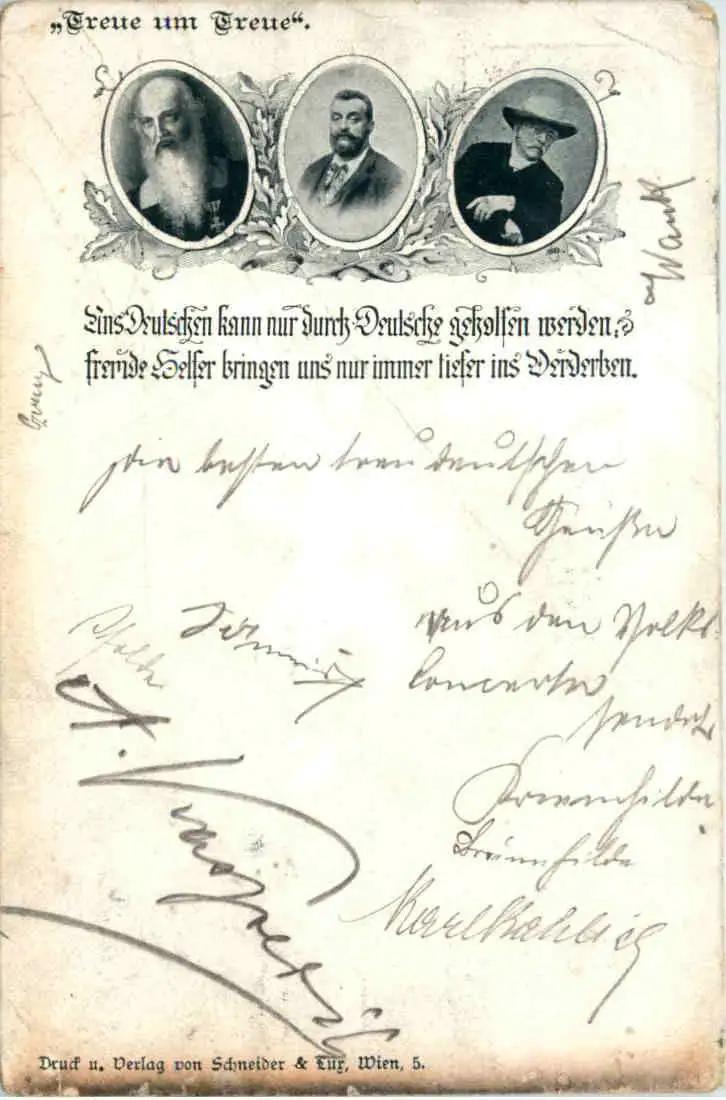 „Treue um Treue“.
Uns Deutschen kann nur durch Deutsche geholfen werden,
fremde Helfer bringen uns nur immer tiefer ins Verderben.
Wanek
Franz
die besten treu deutschen
Grüße
aus den Volks
Concerten
sendet
Kriemhilde
Brünnhilde
Karl
A.
Druck u. Verlag von Schneider & Lux, Wien, 5.